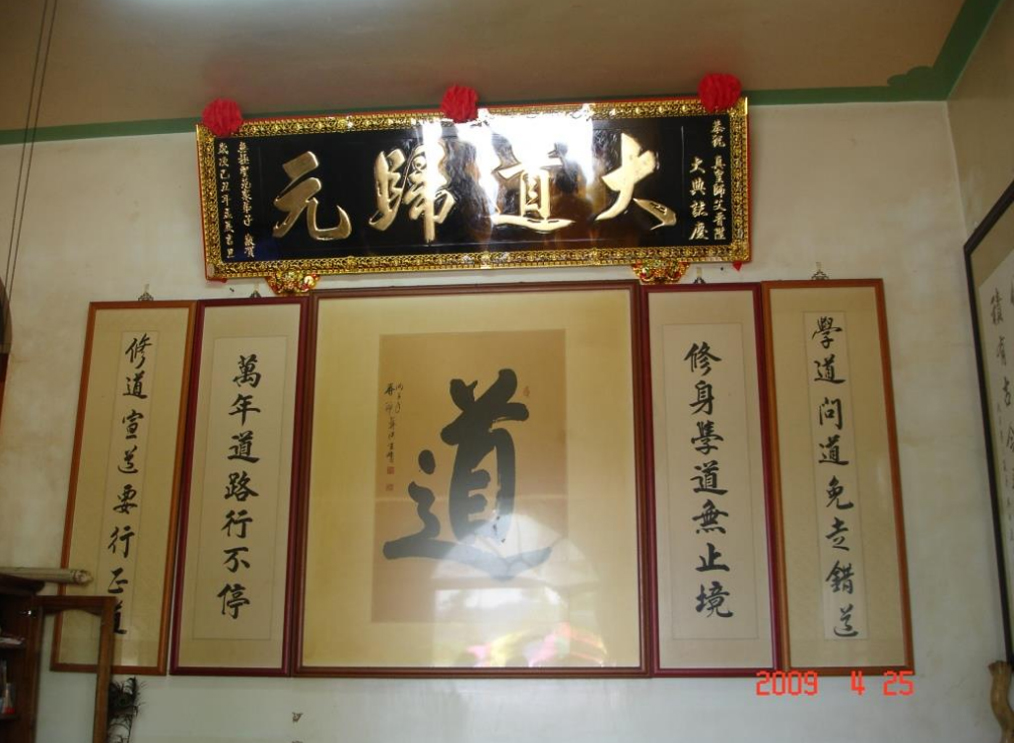 大典誌慶
大道歸元
歲次己丑年孟夏吉旦
學道問道免走錯道
修身學道無止境
道
萬年道路行不停
修道宣道要行正道
2009 4 25